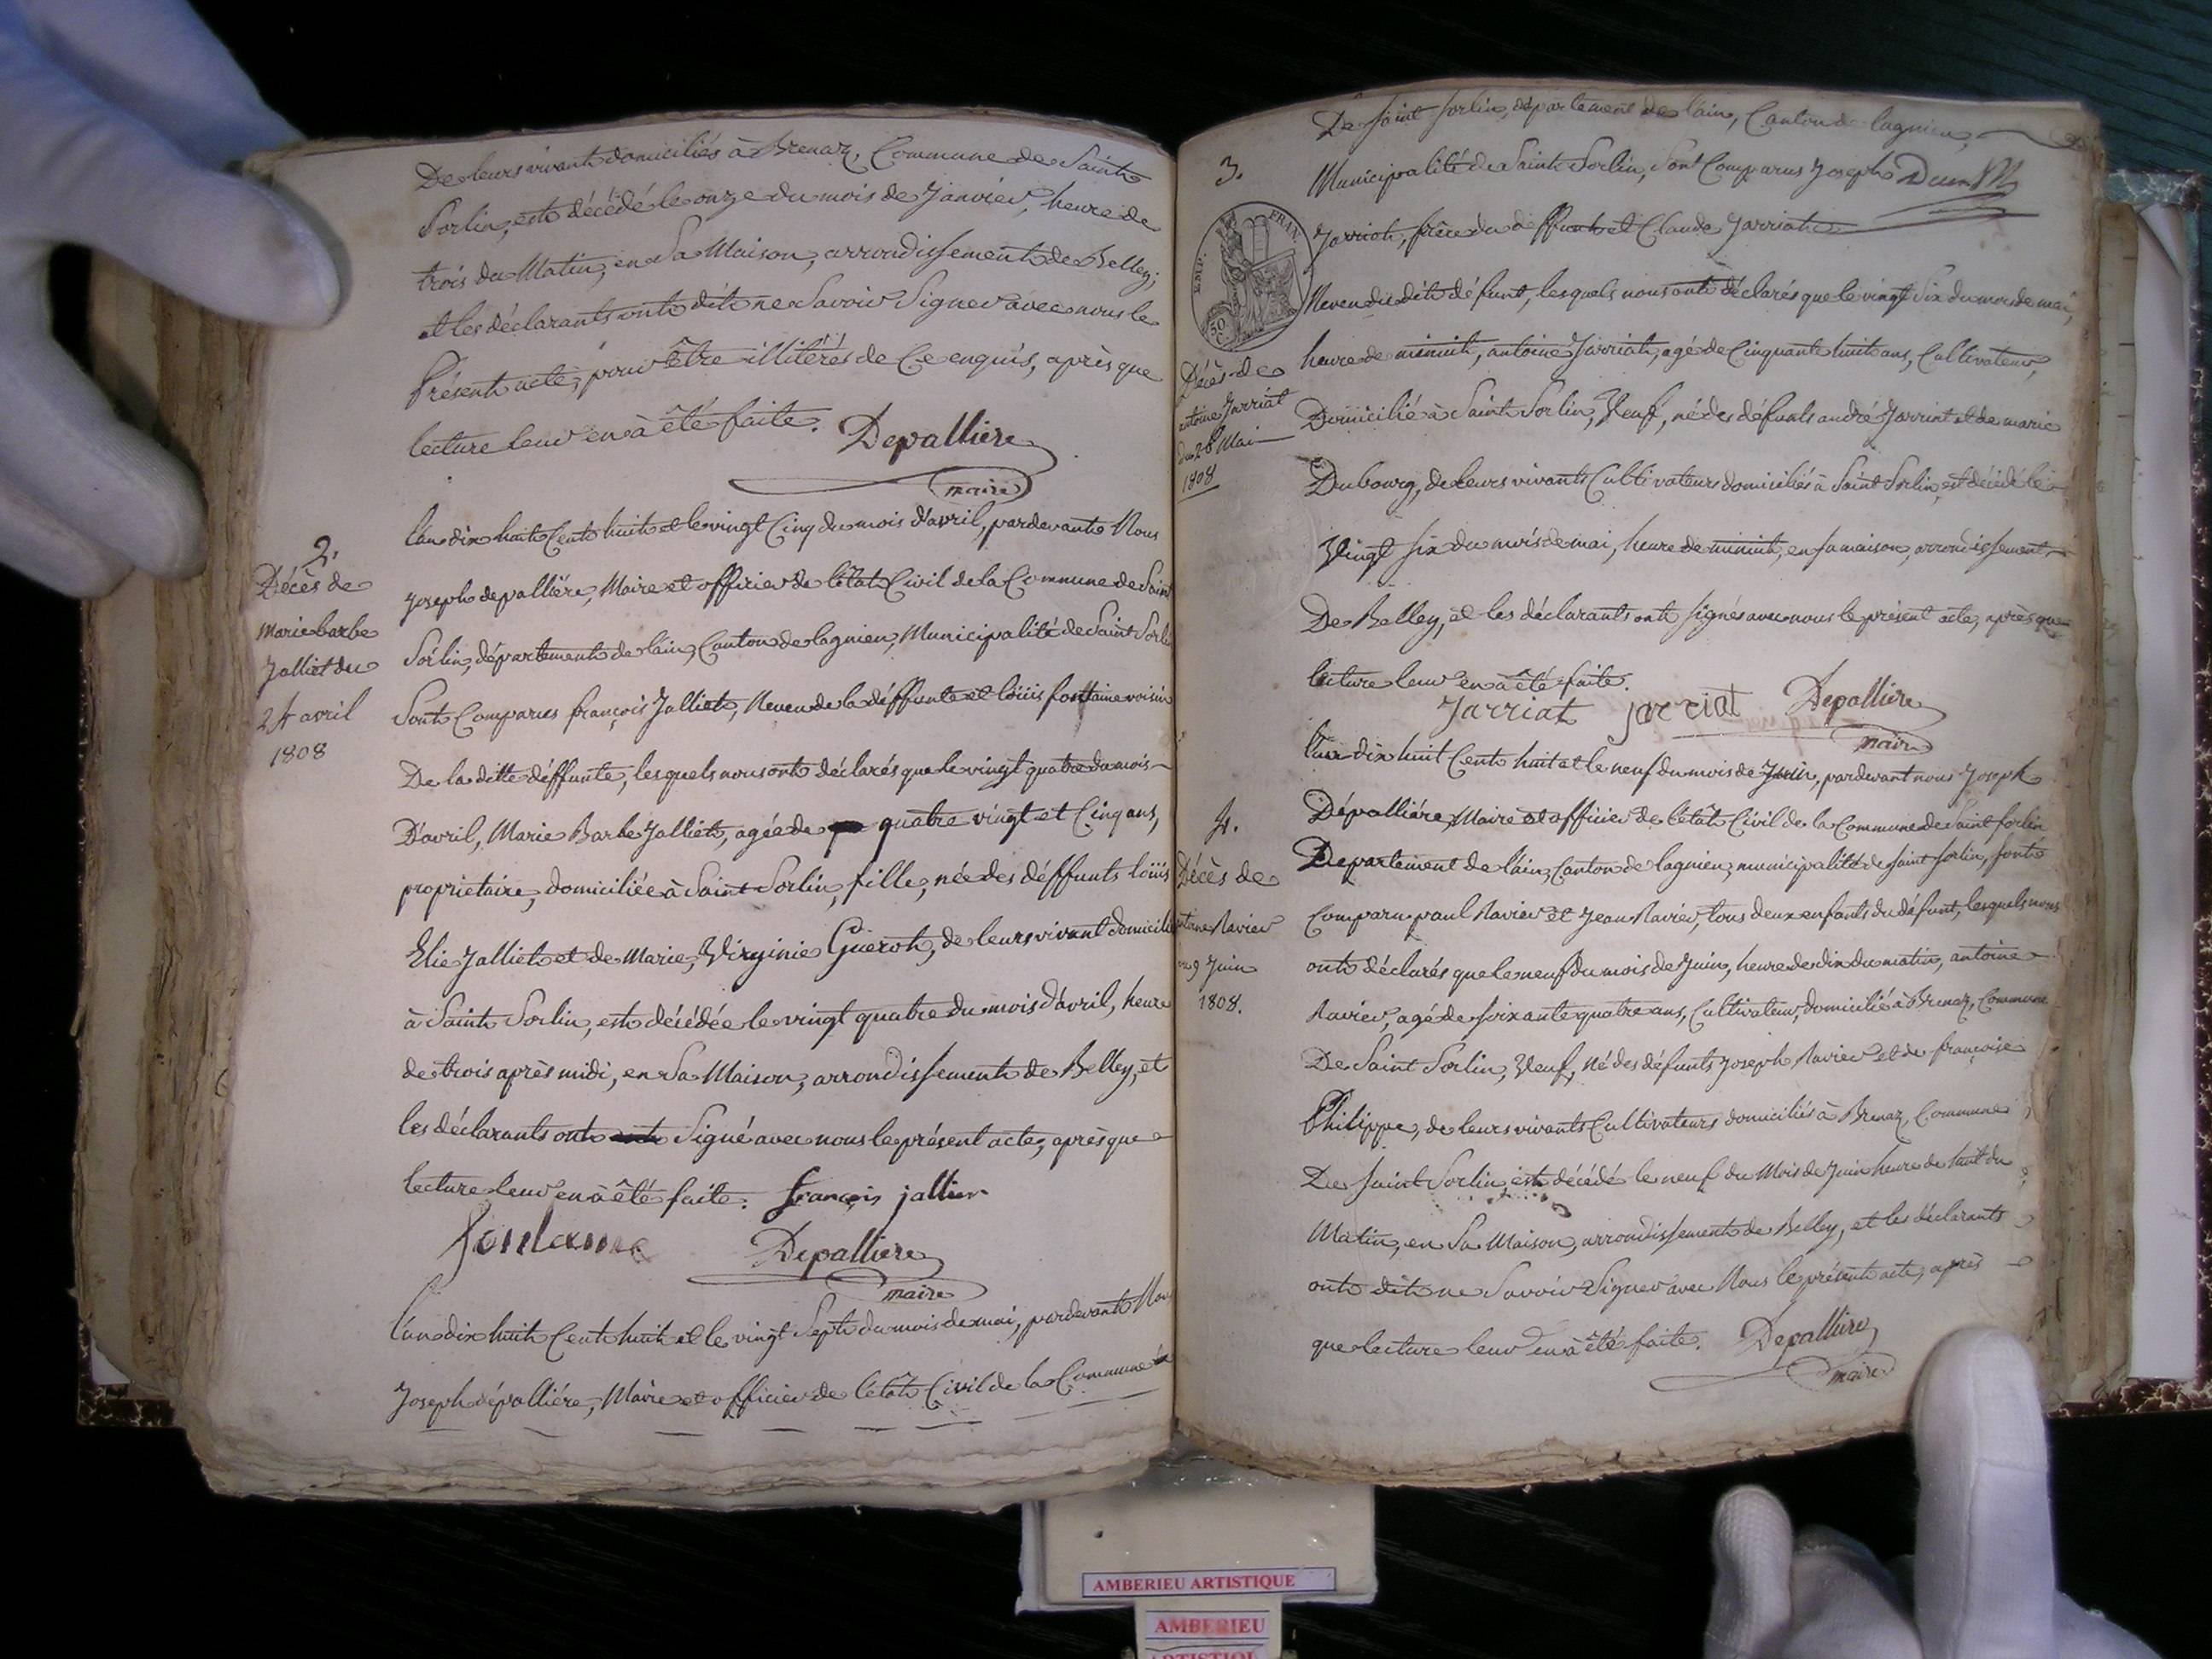 De leurs vivant domiciliés à Brenaz, Commune de Saint
Sorlin, est décédé le onze du mois de Janvier, heure de
trois du Matin, en Sa Maison, arrondissement de Belley;
et les déclarants ont dit ne Savoir Signer avec nous le
Présent acte, pour être illitérés de Ce enquis, après que
lecture leur en à été faite. Depalliere
maire
2.
Décès de
marie barbe
Jalliet du
24 avril
1808
L'an dix huit Cent huit et le vingt Cinq du mois d'avril, pardevant Nous
Joseph depalliére, Maire et officier de l'état Civil de la Commune de Saint
Sorlin, département de l'ain, Canton de lagnieu, Municipalité de Saint Sorlin
Sont Comparus françois Jalliet, Neveu de la déffunte et loüis fontaine voisin
De la ditte déffunte, lesquels nous ont déclarés que le vingt quatre du mois
D'avril, Marie Barbe Jalliet, agée de quatre vingt et Cinq ans,
propriétaire, domiciliée à Saint Sorlin, fille, née des déffunts loüis
Elie Jalliet et de Marie, Virginie Guerot, de leurs vivant domicilié
à Saint Sorlin, est décédée le vingt quatre du mois d'avril, heure
de trois après midi, en Sa Maison, arrondissement de Belley, et
les déclarants ont Signé avec nous le présent acte, après que
lecture leur en à été faite. françois jallier
fontaine Depalliere
maire
L'an dix huit Cent huit et le vingt Sept du mois de mai, pardevant Nous
Joseph dépalliére, Maire et officier de l'état Civil de la Commune
De Saint Sorlin, département de l'ain, Canton de lagnieu,
Municipalité de Saint Sorlin, Sont Comparus Joseph
3.
EMP. FRAN.
50 C
Jarriat, frère du déffunt et Claude Jarriat
Neveu du dit défunt, lesquels nous ont déclarés que le vingt Six du mois de mai,
heure de minuit, antoine Jarriat, agé de Cinquante huit ans, Cultivateur,
Domicilié à Saint Sorlin, Veuf, né des défunts andré Jarriat et de marie
Dubourg, de leurs vivants Cultivateurs domiciliés à Saint Sorlin, est décédé le
Vingt Six du mois de mai, heure de minuit, en sa maison, arrondissement
De Belley, et les déclarants ont Signés avec nous le présent acte, après que
lecture leur en à été faite.
Jarriat jarriat Depalliere
maire
Décès de
antoine Jarriat
du 26 Mai
1808
L'an dix huit Cent huit et le neuf du mois de Juin, pardevant nous Joseph
Dépalliére, Maire et officier de l'état Civil de la Commune de Saint Sorlin
Departement de l'ain, Canton de lagnieu, municipalité de Saint Sorlin, sont
Comparu paul Ravier et Jean Ravier, tous deux enfants du défunt, lesquels nous
ont déclarés que le neuf du mois de Juin, heure de dix du matin, antoine
Ravier, agé de soixante quatre ans, Cultivateur, domicilié à Brenaz, Commune
De Saint Sorlin, Veuf, Né des défunts Joseph Ravier et de françoise
Philippe, de leurs vivants Cultivateurs domiciliés à Brenaz, Commune
De Saint Sorlin, est décédé le neuf du Mois de Juin heure de huit du
Matin, en Sa Maison, arrondissement de Belley, et les déclarants
ont dit ne Savoir Signer avec Nous le présent acte, après
que lecture leur en à été faite. Depalliere
maire
4.
Décès de
antoine Ravier
9 Juin
1808.
AMBERIEU ARTISTIQUE
AMBERIEU
ARTISTIQUE